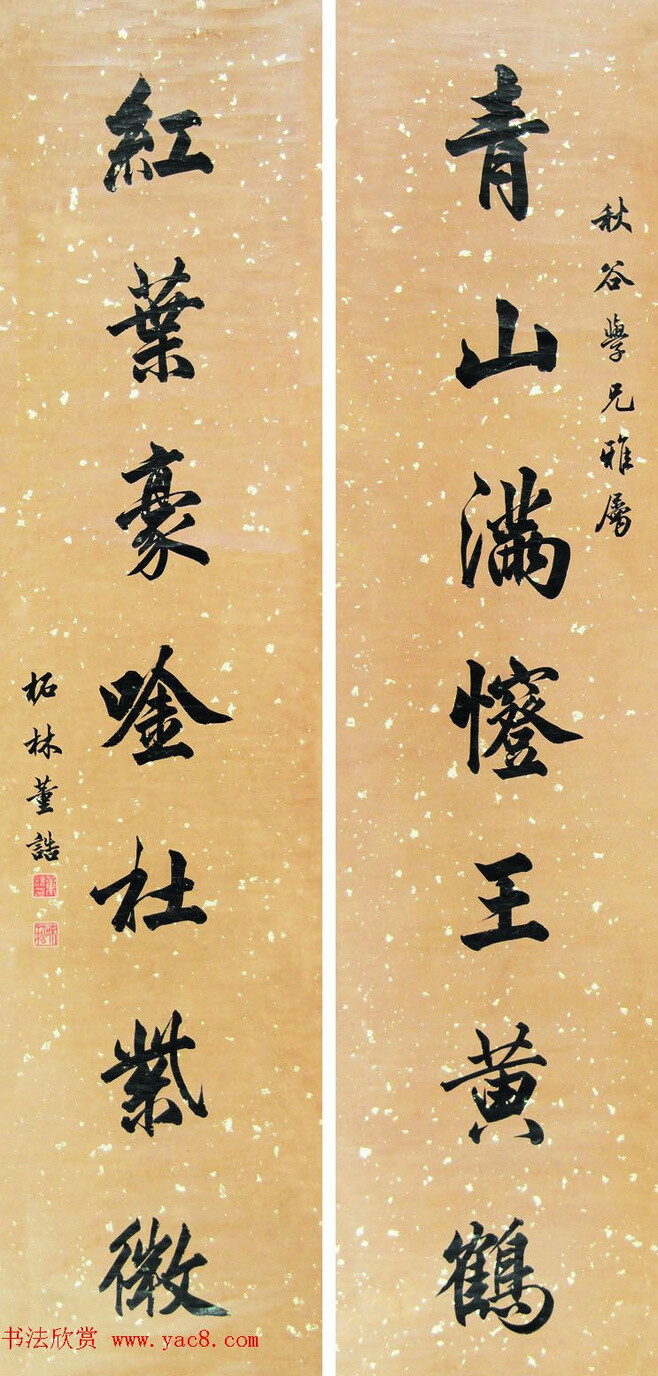 秋谷學兄雅屬
青山滿王黄鶴
紅葉豪唫杜紫微
柘林董誥
书法欣赏 www.yac8.com